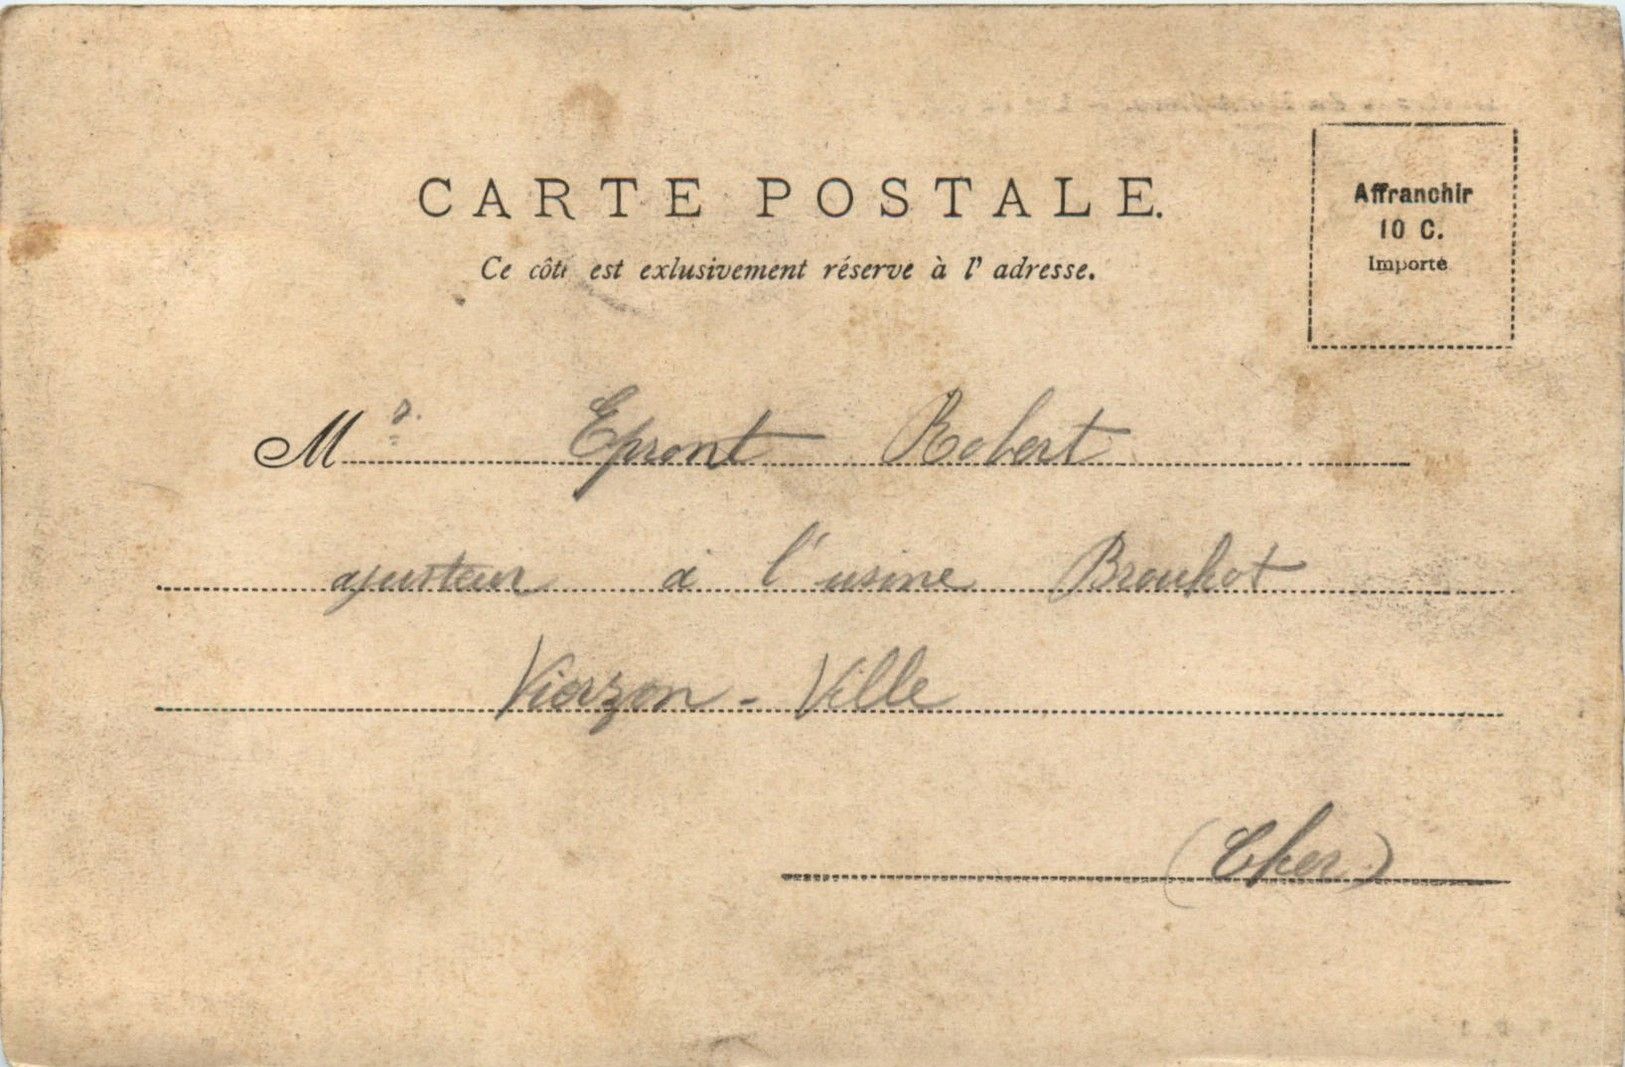 CARTE POSTALE.
Ce côté est exlusivement réserve à l' adresse.
Affranchir
10 C.
Importé
Mr. Epront Robert
ajusteur à l'usine Brouhot
Vierzon - Ville
(Cher)